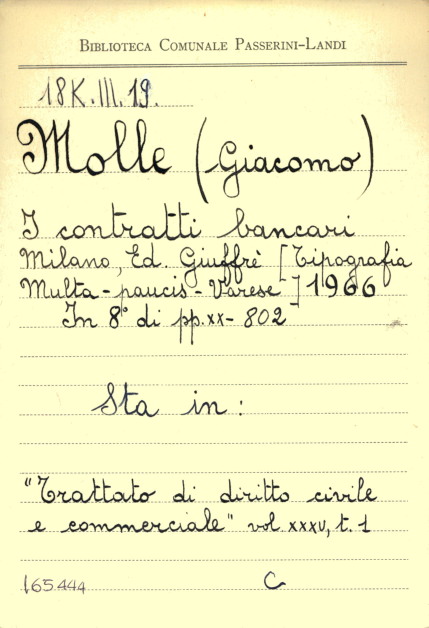 BIBLIOTECA COMUNALE PASSERINI-LANDI
18K.III.19.
Molle (Giacomo)
I contratti bancari
Milano, Ed. Giuffrè [Tipografia
Multa-paucis-Varese] 1966
In 8° di pp.xx-802
Sta in:
"Trattato di diritto civile
e commerciale" vol. xxxv, t. 1
165.444 C